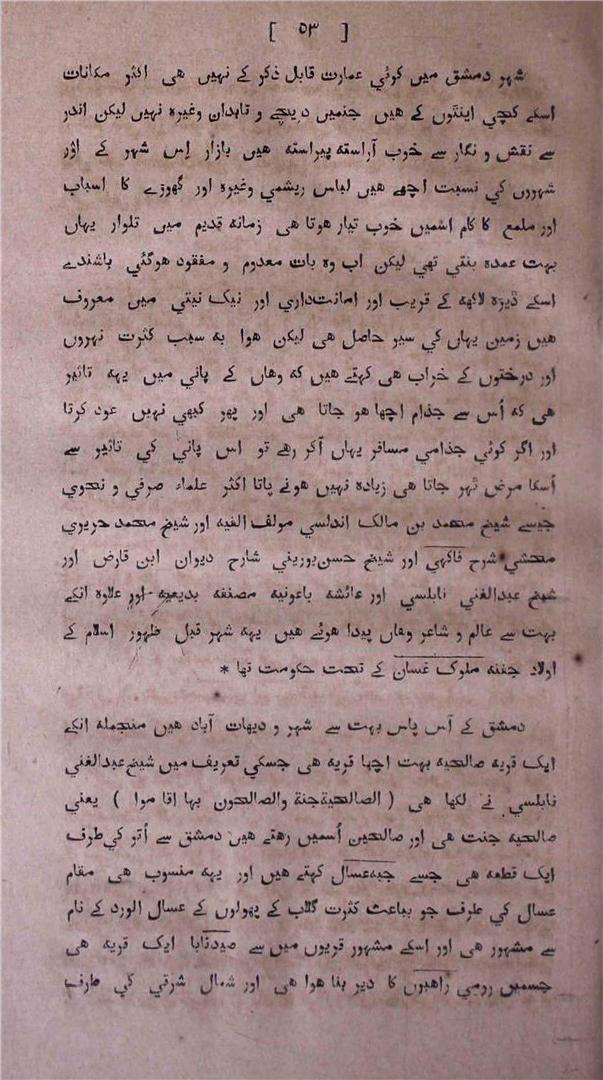 [ ٥٣ ]
شہر دمشق میں کوئي عمارت قابل ذکر کے نہیں ھی اکثر مکانات
اسکے کچي اینٹوں کے ھیں جنمیں دریچے و تابدان وغیرہ نہیں لیکن اندر
سے نقش و نگار سے خوب آراستہ پیراستہ ھیں بازار اِس شہر کے اَوْر
شہروں کي نسبت اچھے ھیں لباس ریشمي وغیرہ اور گھوڑے کا اسباب
اور ملمع کا کام اسمیں خوب تیار ھوتا ھی زمانہ قدیم میں تلوار یہاں
بہت عمدہ بنتي تھي لیکن اب وہ بات معدوم و مفقود ھوگئي باشندے
اسکے ڈیڑہ لاکھہ کے قریب اور امانت‌داري اور نیک نیتي میں معروف
ھیں زمین یہاں کي سیر حاصل ھی لیکن ھوا بہ سبب کثرت نہروں
اور درختوں کے خراب ھی کہتے ھیں کہ وھاں کے پاني میں یہہ تاثیر
ھی کہ اُس سے جذام اچھا ھو جاتا ھی اور پھر کبھي نہیں عود کرتا
اور اگر کوئي جذامي مسافر یہاں آکر رھے تو اس پاني کي تاثیر سے
اُسکا مرض ٹہر جاتا ھی زیادہ نہیں ھونے پاتا اکثر علماء صرفي و نحوي
جیسے شیخ محمد بن مالک اندلسي مولف الفیہ اور شیخ محمد حریري
محشي شرح فاکہي اور شیخ حسن‌بوریني شارح دیوان ابن فارض اور
شیخ عبدالغني نابلسي اور عائشہ باعونیہ مصنفہ بدیعیہ اور علاوہ انکے
بہت سے عالم و شاعر وھاں پیدا ھوئے ھیں یہہ شہر قبل ظہور اسلام کے
اولاد جفنہ ملوک غسان کے تحت حکومت تھا *
دمشق کے آس پاس بہت سے شہر و دیہات آباد ھیں منجملہ انکے
ایک قریہ صالحیہ بہت اچھا قریہ ھی جسکي تعریف میں شیخ‌عبدالغني
نابلسي نے لکھا ھی ( الصالحیةجنة والصالحون بہا اقا موا ) یعني
صالحیہ جنت ھی اور صالحین اُسمیں رھتے ھیں دمشق سے اُتر کي‌طرف
ایک قطعہ ھی جسے جبہ‌عسال کہتے ھیں اور یہہ منسوب ھی مقام
عسال کي طرف جو بباعث کثرت گلاب کے پھولوں کے عسال الورد کے نام
سے مشہور ھی اور اسکے مشہور قریوں میں سے صیدنایا ایک قریہ ھی
جسمیں رومي راھبوں کا دیر بنا ھوا ھی اور شمال شرقي کي طرف